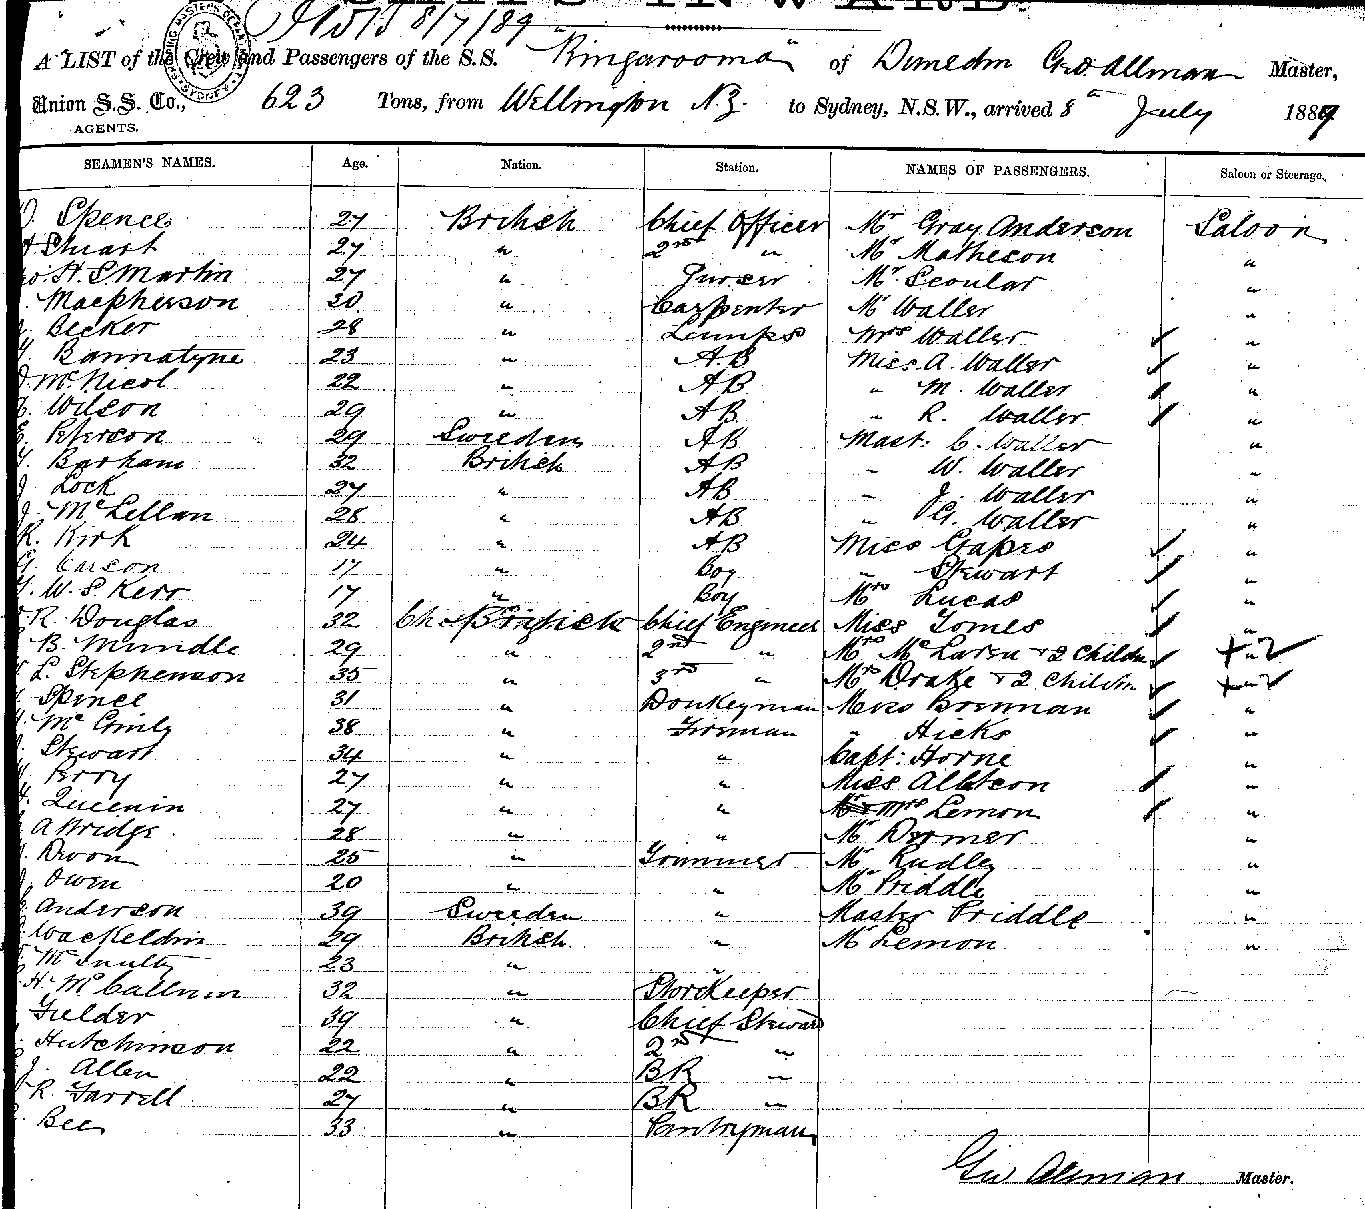 SHIPS INWARD.
8/7/89
A LIST of the Crew and Passengers of the S.S. "Ringarooma" of Dunedin Geo Allman Master,
Union S.S. Co., 623 Tons, from Wellington N.Z. to Sydney, N.S.W., arrived 8th July 1889
AGENTS.
SEAMEN'S NAMES. Age. Nation. Station. NAMES OF PASSENGERS. Saloon or Steerage.
Spence 27 British Chief Officer Mr Gray Anderson Saloon
Stuart 27 " 2nd " Mr Matheson "
H. S Martin 27 " Purser Mr Scoular "
Macpherson 30 " Carpenter Mr Waller "
Becker 28 " Lamps Mrs Waller "
Bannatyne 23 " AB Miss A. Waller "
McNicol 22 " AB " M. Waller "
Wilson 29 " AB " R. Waller "
Peterson 29 Sweeden AB Mast: C. Waller "
Barham 32 British AB " W. Waller "
J Lock 27 " AB " J. Waller "
J. McLellan 28 " AB " G. Waller "
R. Kirk 24 " AB Miss Gapes "
G. Carson 17 " Boy " Stewart "
W. S Kerr 17 " Boy Mrs Lucas "
R. Douglas 32 British Chief Engineer Miss Tomes "
B. Mundle 29 " 2nd " Mrs McLaren + 2 Childn "
L. Stephenson 35 " 3rd " Mrs Drake + 2 Childn "
Spence 31 " Donkeyman Miss Brennan "
McGinly 38 " Fireman " Hicks "
Stewart 34 " " Capt: Horne "
Perry 27 " " Miss Albtson "
Queenin 27 " " Mrs Lemon "
A Bridge 28 " " Mr Dermer "
Devon 25 " Trimmer Mr Rudley "
Owen 20 " " Mr Priddle "
Anderson 39 Sweeden " Master Priddle "
Wackeldin 29 British " Mr Lemon "
McInulty 23 " "
H. McCallum 32 " Storekeeper
Fielder 39 " Chief Steward
Hutchinson 22 " 2nd "
J. Allen 22 " BR "
R. Farrell 27 " BR "
Bee 33 " Pantryman
Geo Allman Master.